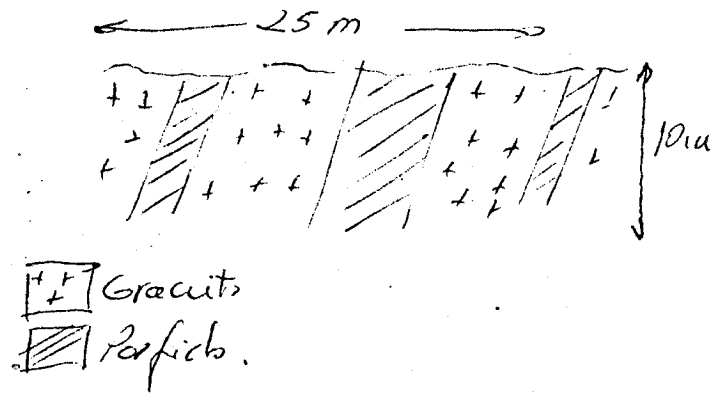 25 m
10 m
Granito
Porfido.